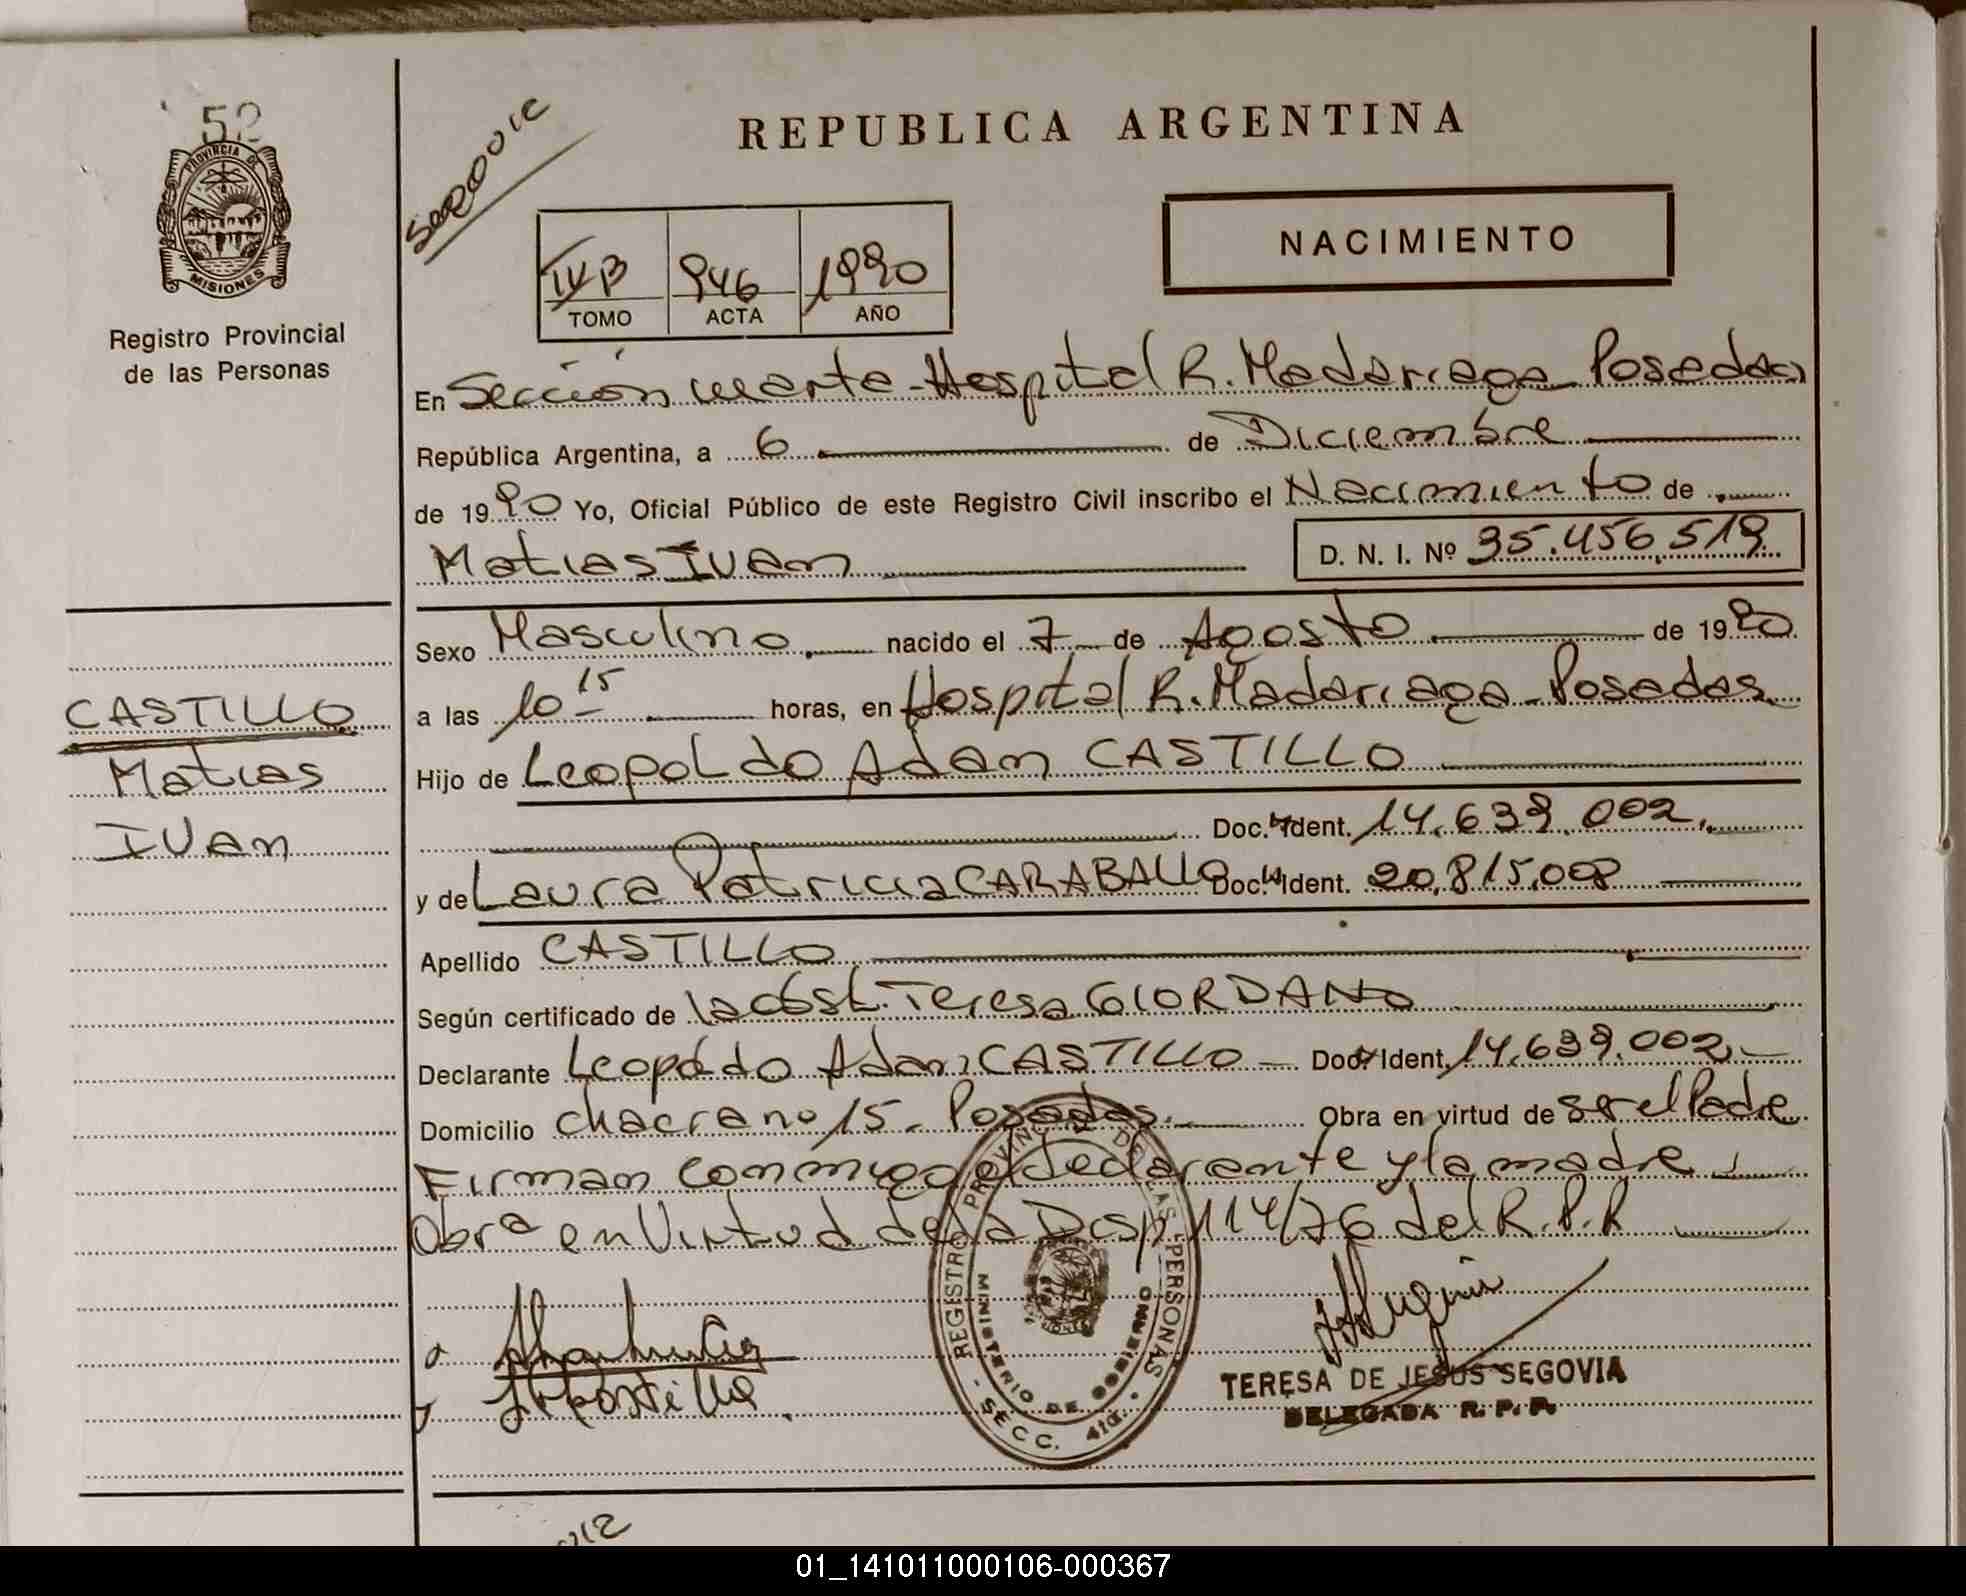 52
PROVINCIA DE
MISIONES
Registro Provincial
de las Personas
REPUBLICA ARGENTINA
NACIMIENTO
IVB 946 1990
TOMO ACTA AÑO
En Sección cuarta - Hospital R. Madariaga Posadas
República Argentina, a 6 de Diciembre
de 1990 Yo, Oficial Público de este Registro Civil inscribo el Nacimiento de
Matias Ivan D. N. I. Nº 35.456.519
Sexo Masculino nacido el 7 de Agosto de 1990
a las 10 15 horas, en Hospital R. Madariaga - Posadas
CASTILLO
Matias
Ivan
Hijo de Leopoldo Adam CASTILLO
Doc. Ident. 14.639.002
y de Laura Patricia CARABALLO Doc. Ident. 20.815.008
Apellido CASTILLO
Según certificado de la Obst. Teresa GIORDANO
Declarante Leopoldo Adam CASTILLO - Doc. Ident. 14.639.002
Domicilio chacra no 15 - Posadas. Obra en virtud de ser el Padre
Firman conmigo el declarante y la madre
Obra en Virtud de la Disp 114/76 del R.P.P
REGISTRO PROVINCIAL DE LAS PERSONAS
MINISTERIO DE GOBIERNO
- SECC. 4ta. -
TERESA DE JESUS SEGOVIA
DELEGADA R. P. P.
01_141011000106-000367